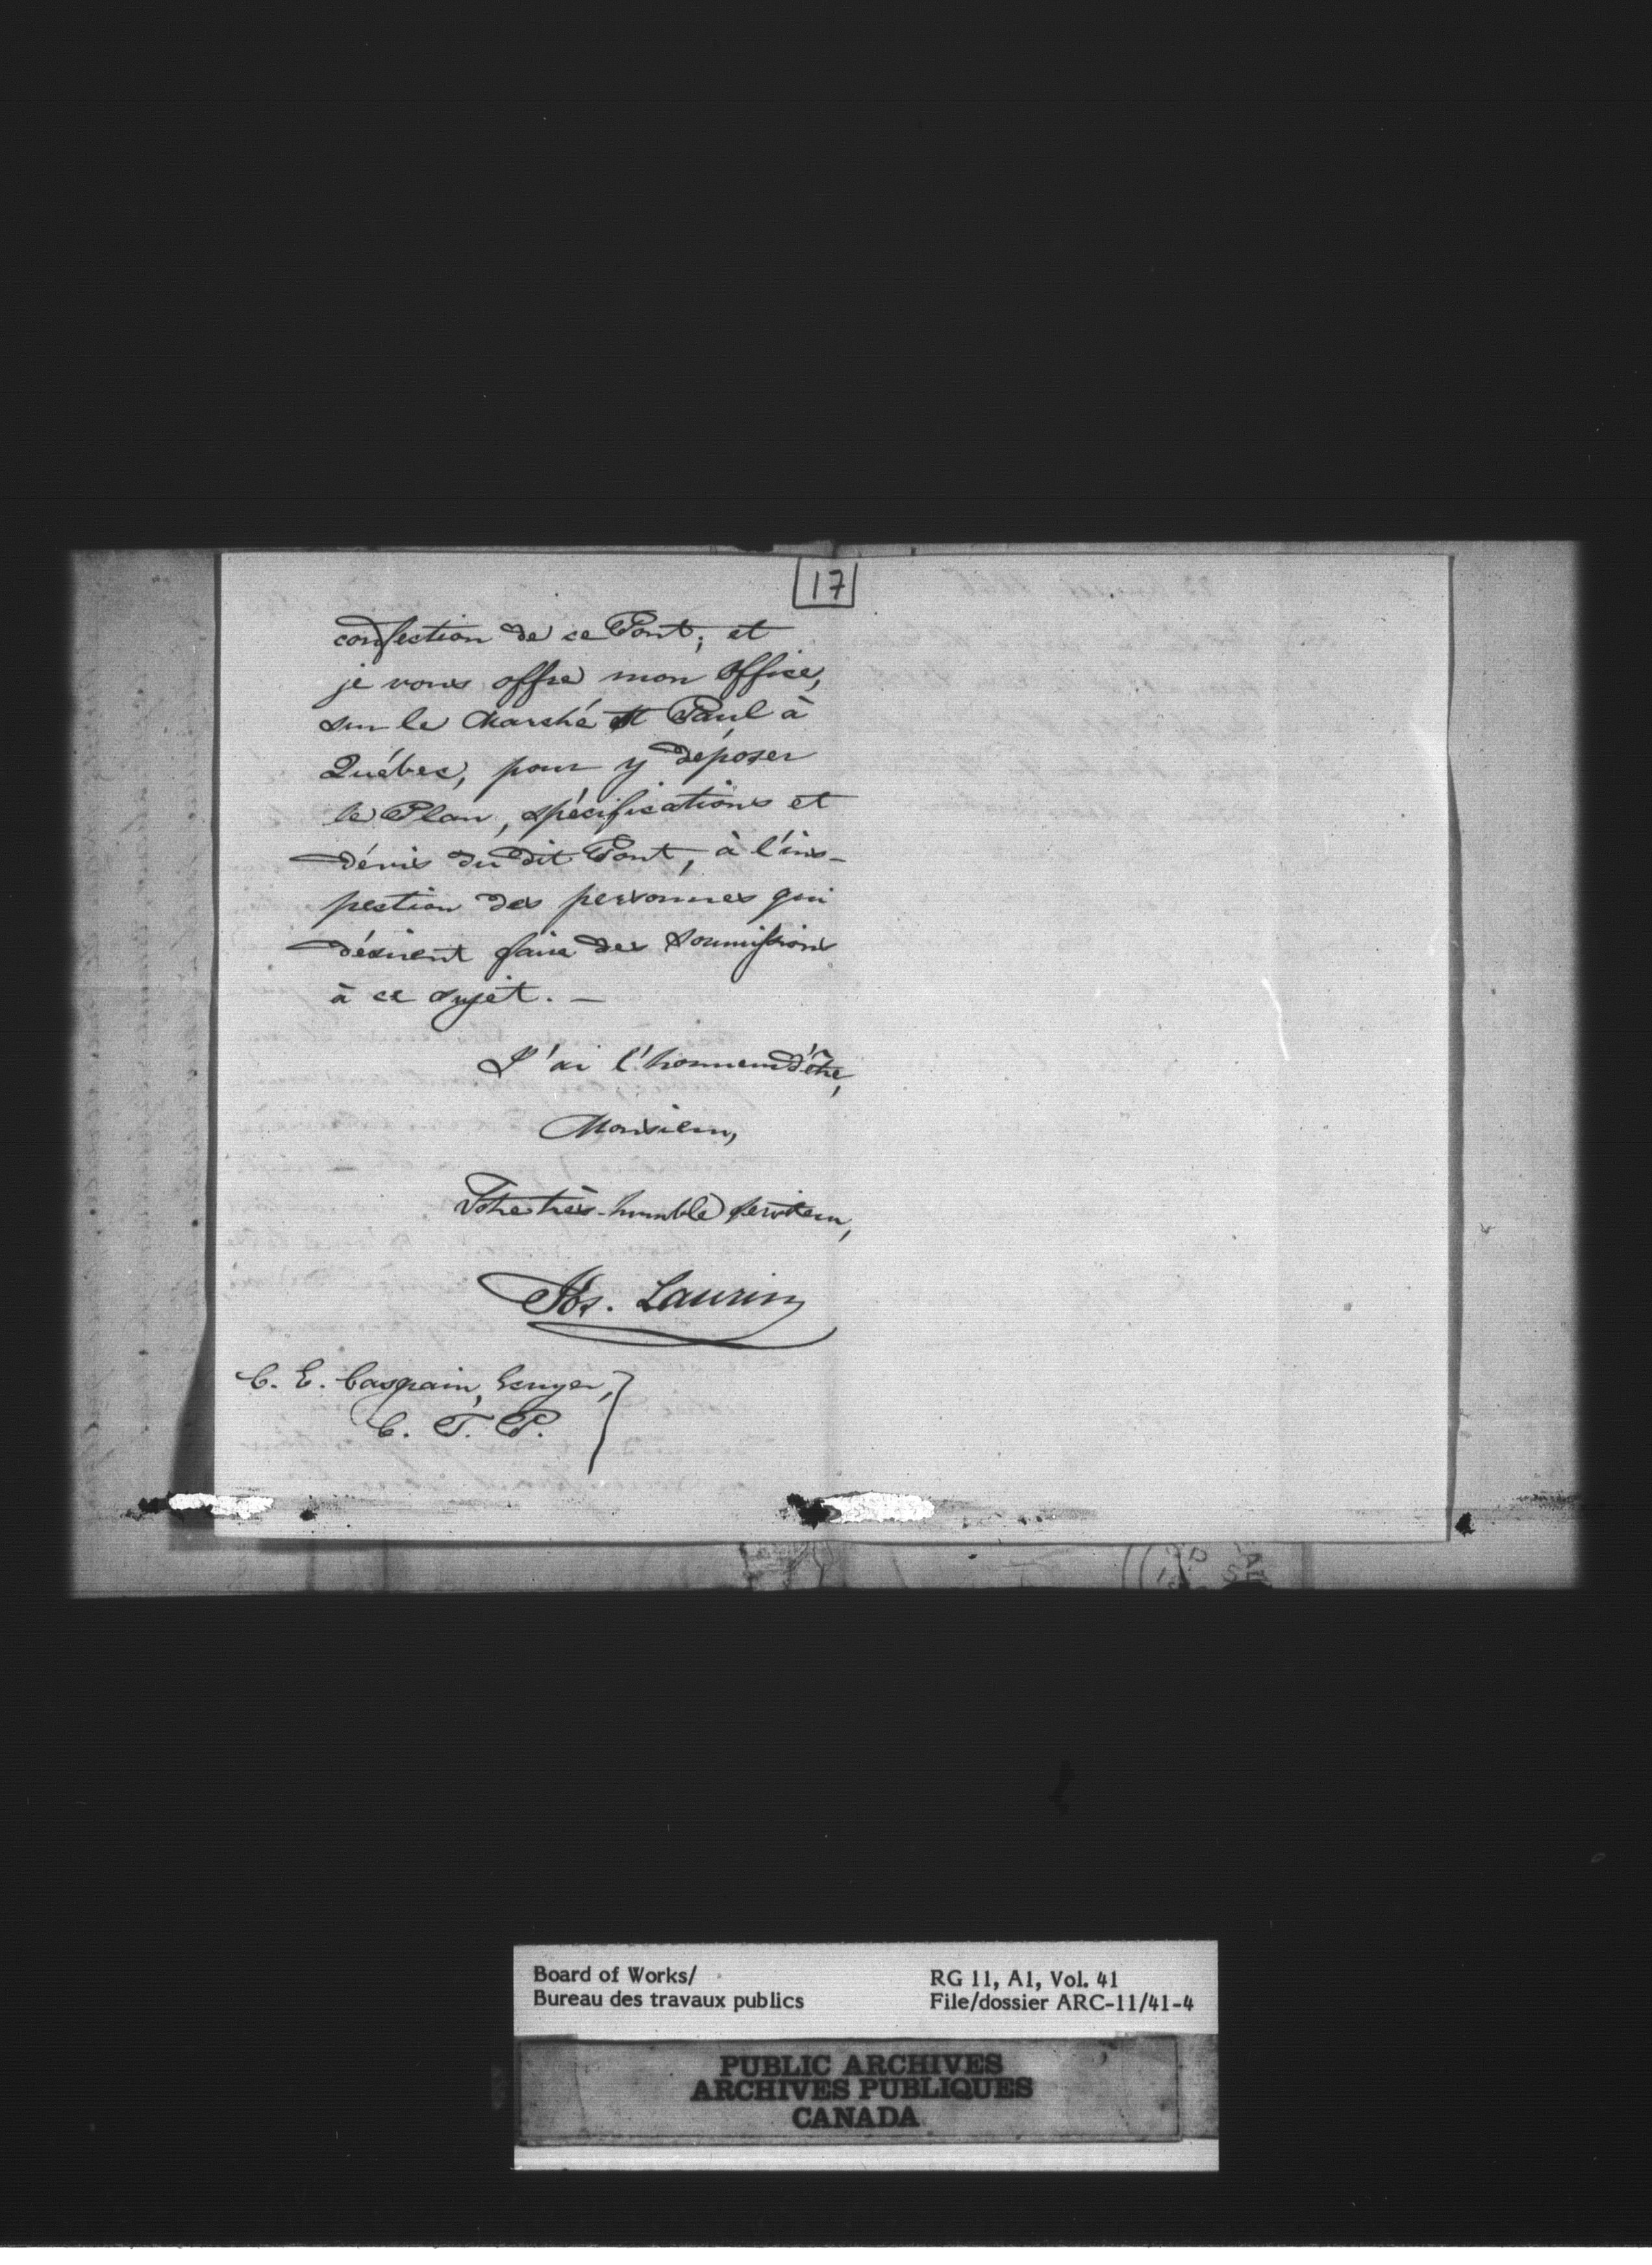 17
confection de ce Pont; et
je vous offre mon Office,
sur le Marché St Paul à
Québec, pour y déposer
le Plan, spécifications et
dévis du dit Pont, à l'ins-
pection des personnes qui
désirent faire des soumissions
à ce sujet. —
J'ai l'honneur d'être,
Monsieur,
Votre très-humble serviteur,
Jos. Laurin
C. E. Casgrain, Ecuyer,
C. T. P.
Board of Works/
Bureau des travaux publics
RG 11, A1, Vol. 41
File/dossier ARC-11/41-4
PUBLIC ARCHIVES
ARCHIVES PUBLIQUES
CANADA